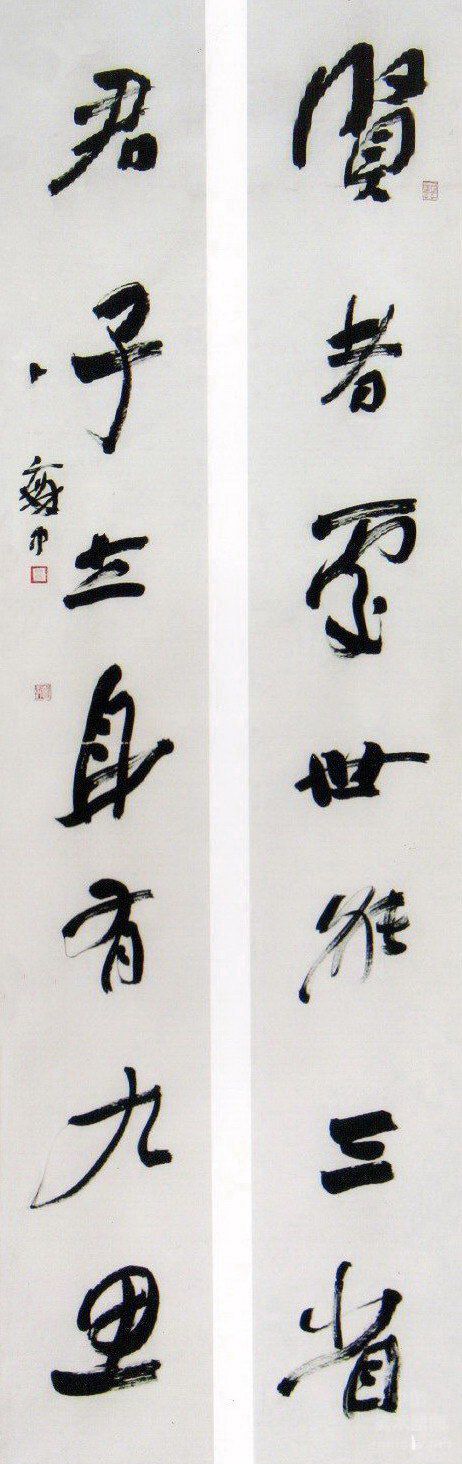 賢者處世能三省
君子立身有九思